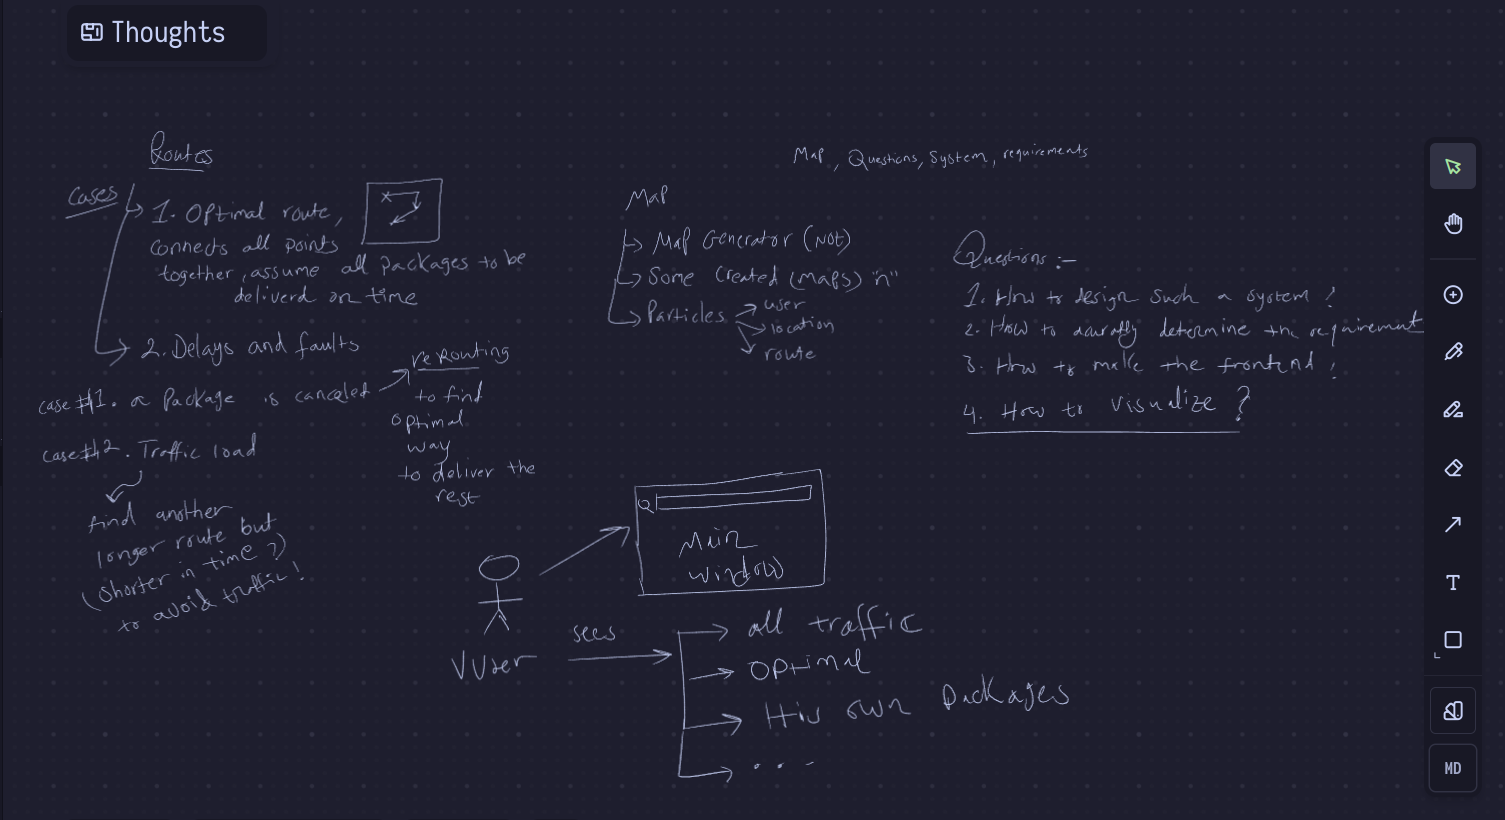 Thoughts
Routes
Map, Questions, System, requirements
Cases
1. Optimal route,
connects all points
together, assume all packages to be
deliverd on time
2. Delays and faults
case#1. a Package is canceled
rerouting
to find
optimal
way
to deliver the
rest
case#2. Traffic load
find another
longer route but
(shorter in time?)
to avoid traffic!
Map
Map Generator (not)
Some Created (maps) "n"
Particles
user
location
route
Questions:-
1. How to design such a system?
2. How to determine the requirement
3. How to make the frontend?
4. How to visualize?
Main
window
sees
all traffic
optimal
His own packages
...
T
MD